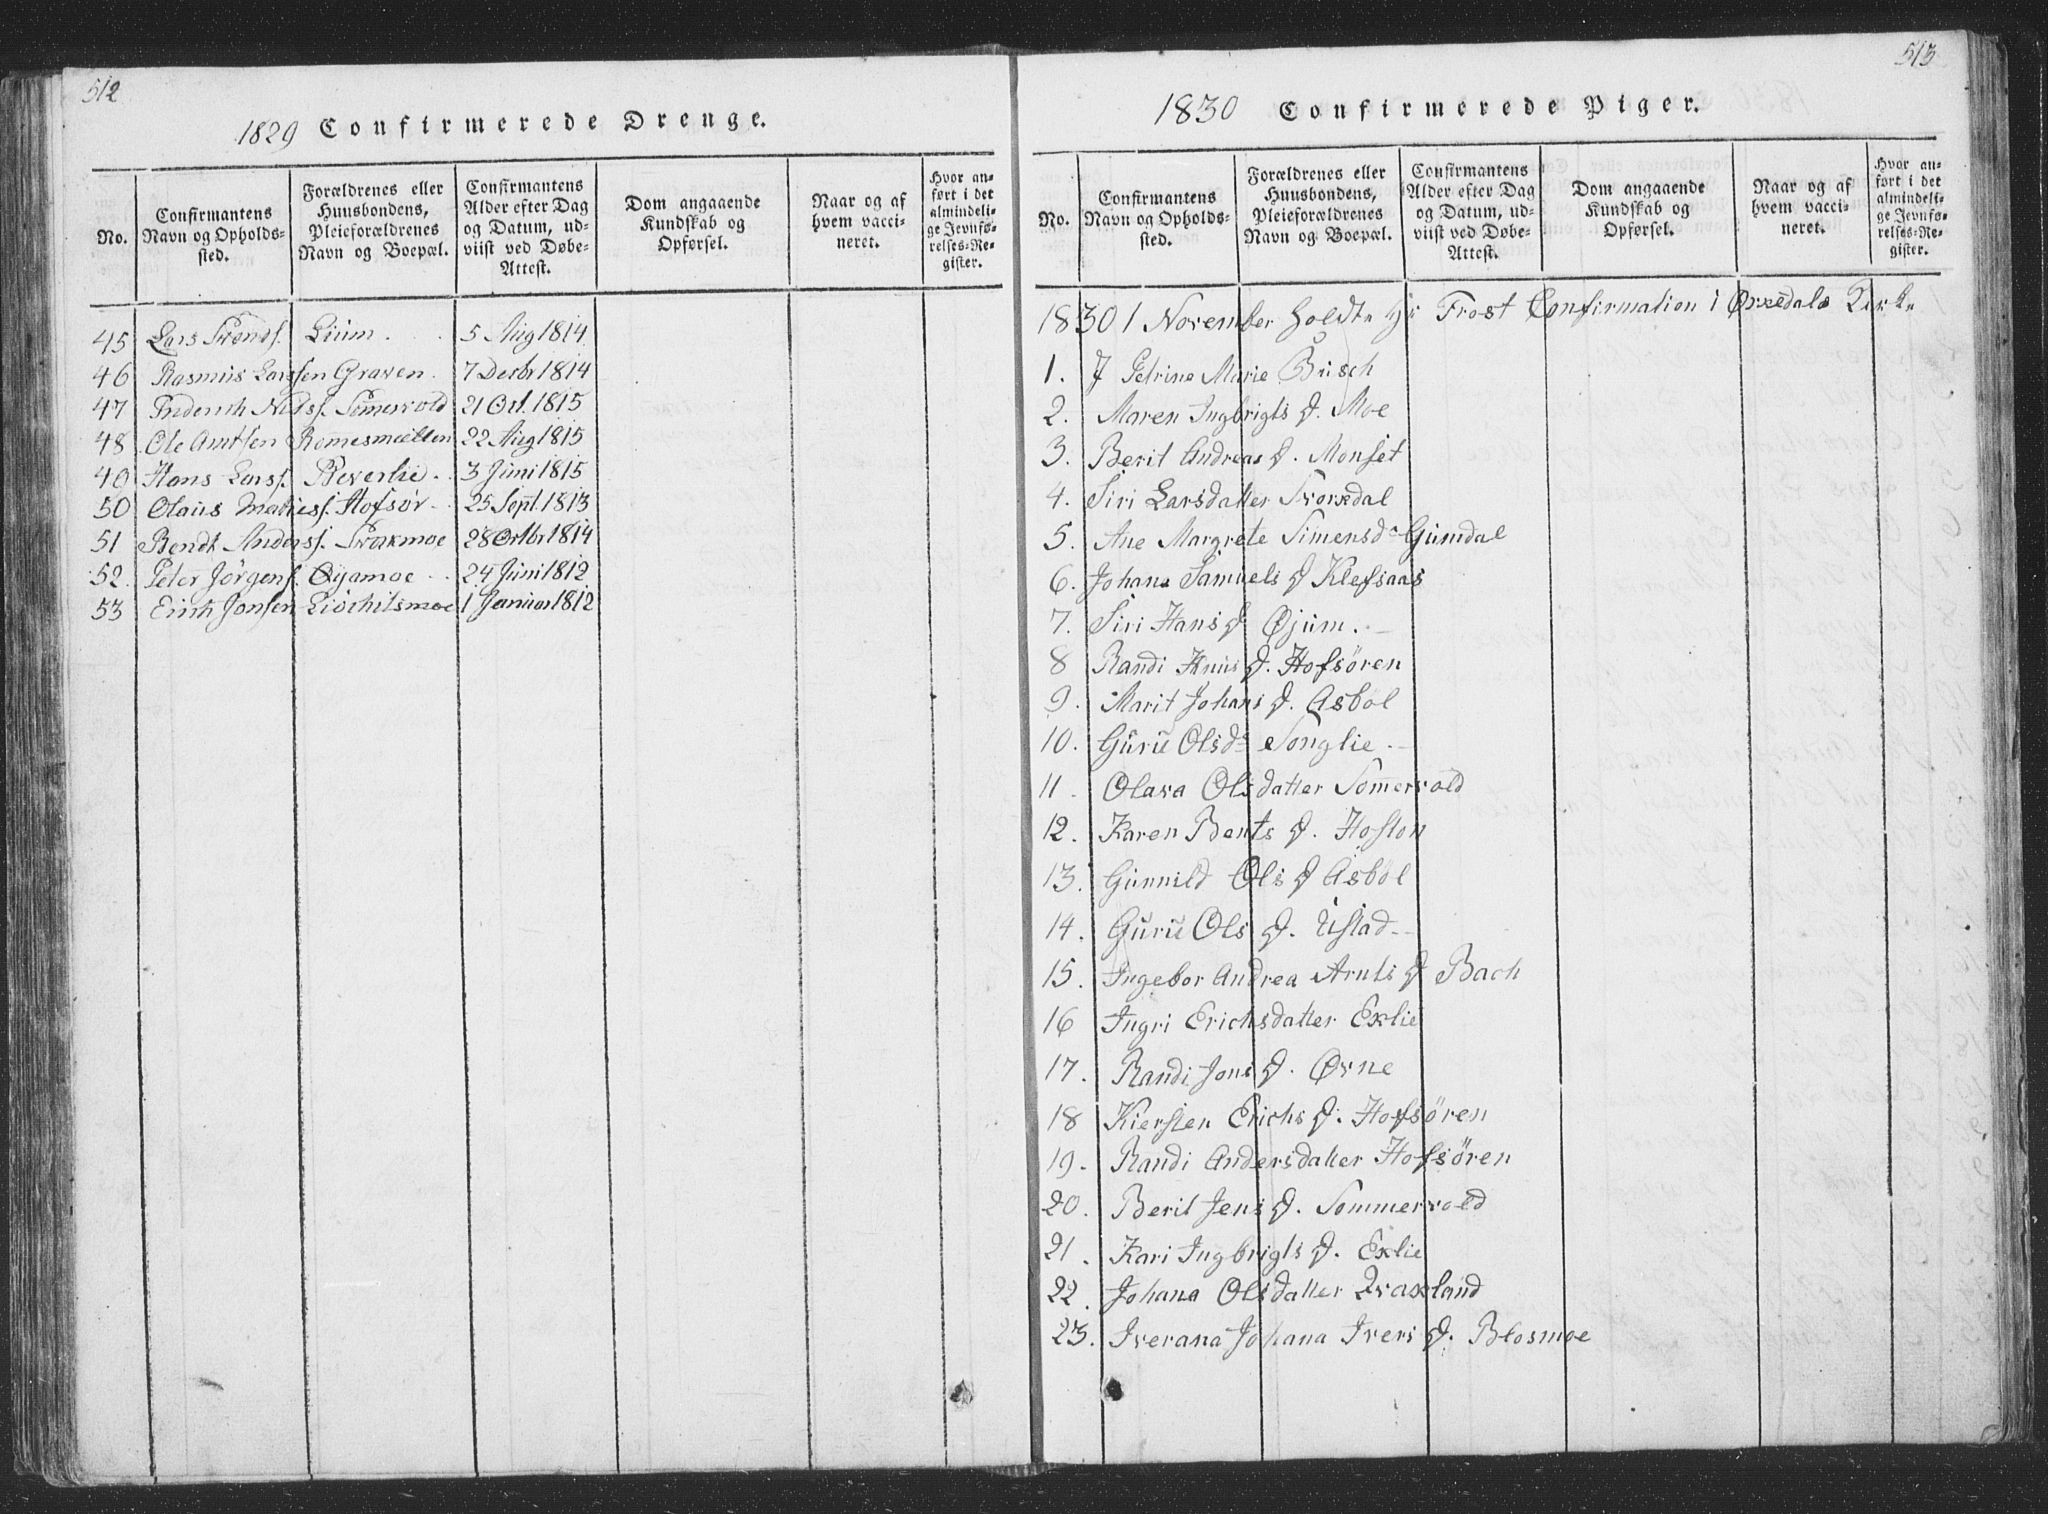 512
1829 Confirmerede Drenge.
No. | Confirmantens Navn og Opholdssted. | Forældrenes eller Huusbondens, Pleieforældrenes Navn og Boepæl. | Confirmantens Alder efter Dag og Datum, udviist ved Døbe-Attest. | Dom angaaende Kundskab og Opførsel. | Naar og af hvem vaccineret. | Hvor anført i det almindelige Jevnførelses-Register.
45 Lars Trønds. Lium 5 Aug 1814
46 Rasmus Larssen Graven. 7 Decbr 1814
47 Friderich Nils s. Somervold 21 Oct. 1815
48 Ole Arntsen Romesmoellen 22 Aug 1815
40 Hans Larss. Beverlie. 3 Juni 1815
50 Olaus Mathiess. Hofsør 25 Sept. 1813
51 Bendt Anderss. Svakmoe 28 Octbr 1814
52. Peter Jørgens. Øyamoe 24 Juni 1812
53 Erich Jonsen Liøchilsmoe 1 Januar 1812
513
1830 Confirmerede Piger.
No. | Confirmantens Navn og Opholdssted. | Forældrenes eller Huusbondens, Pleieforældrenes Navn og Boepæl. | Confirmantens Alder efter Dag og Datum, udviist ved Døbe-Attest. | Dom angaaende Kundskab og Opførsel. | Naar og af hvem vaccineret. | Hvor anført i det almindelige Jevnførelses-Register.
1830 1 November holdt Hr Frost Confirmation i Orkedals Kirke
1. J Petrine Marie Busch
2. Maren Ingbrigts d. Moe
3. Berit Andreas d. Monset
4. Siri Larsdatter Svorkdal
5. Ane Margrete Simensd. Gumdal
6. Johana Samuels d Klefsaas
7. Siri Hans d Øjum.
8 Randi Knus d. Hofsören
9. Marit Johans d. Asböl
10. Guru Olsd. Songlie.
11. Olava Olsdatter Somervold
12. Karen Bents d. Hoston
13. Gunnild Ols d Asböl
14. Guru Ols d. Ustad
15. Ingebor Andrea Arnts d Bach
16 Ingri Erichsdatter Exlie
17. Randi Jons d. Øvne
18 Kiersten Erichs d. Hofsören
19. Randi Andersdatter Hofsören
20. Berit Jens d. Sommervold
21. Kari Ingbrigts d. Exlie
22. Johana Olsdatter Qvaxland
23. Iverana Johana Ivers d. Blosmoe